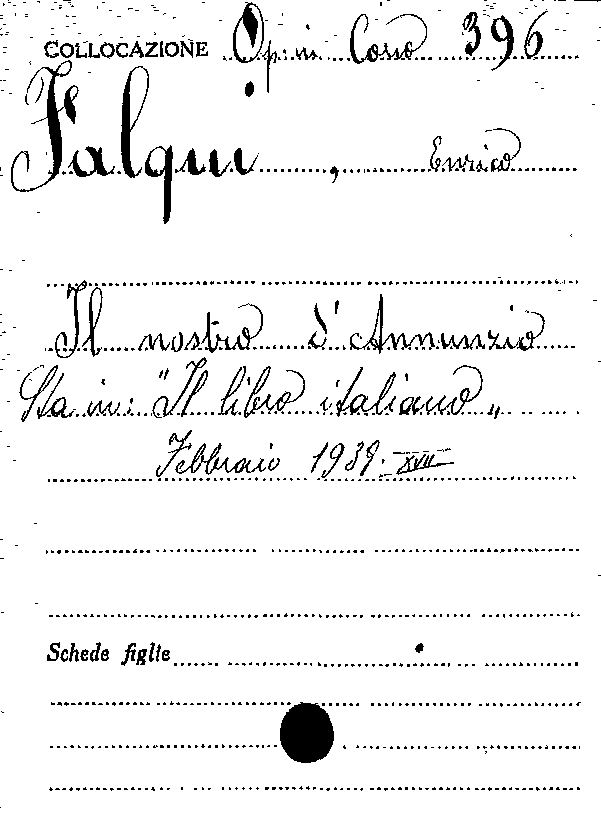 COLLOCAZIONE Op. in Corso 396
Falqui, Enrico
Il nostro d'Annunzio
Sta in: "Il libro italiano„
Febbraio 1939. XVII
Schede figlie